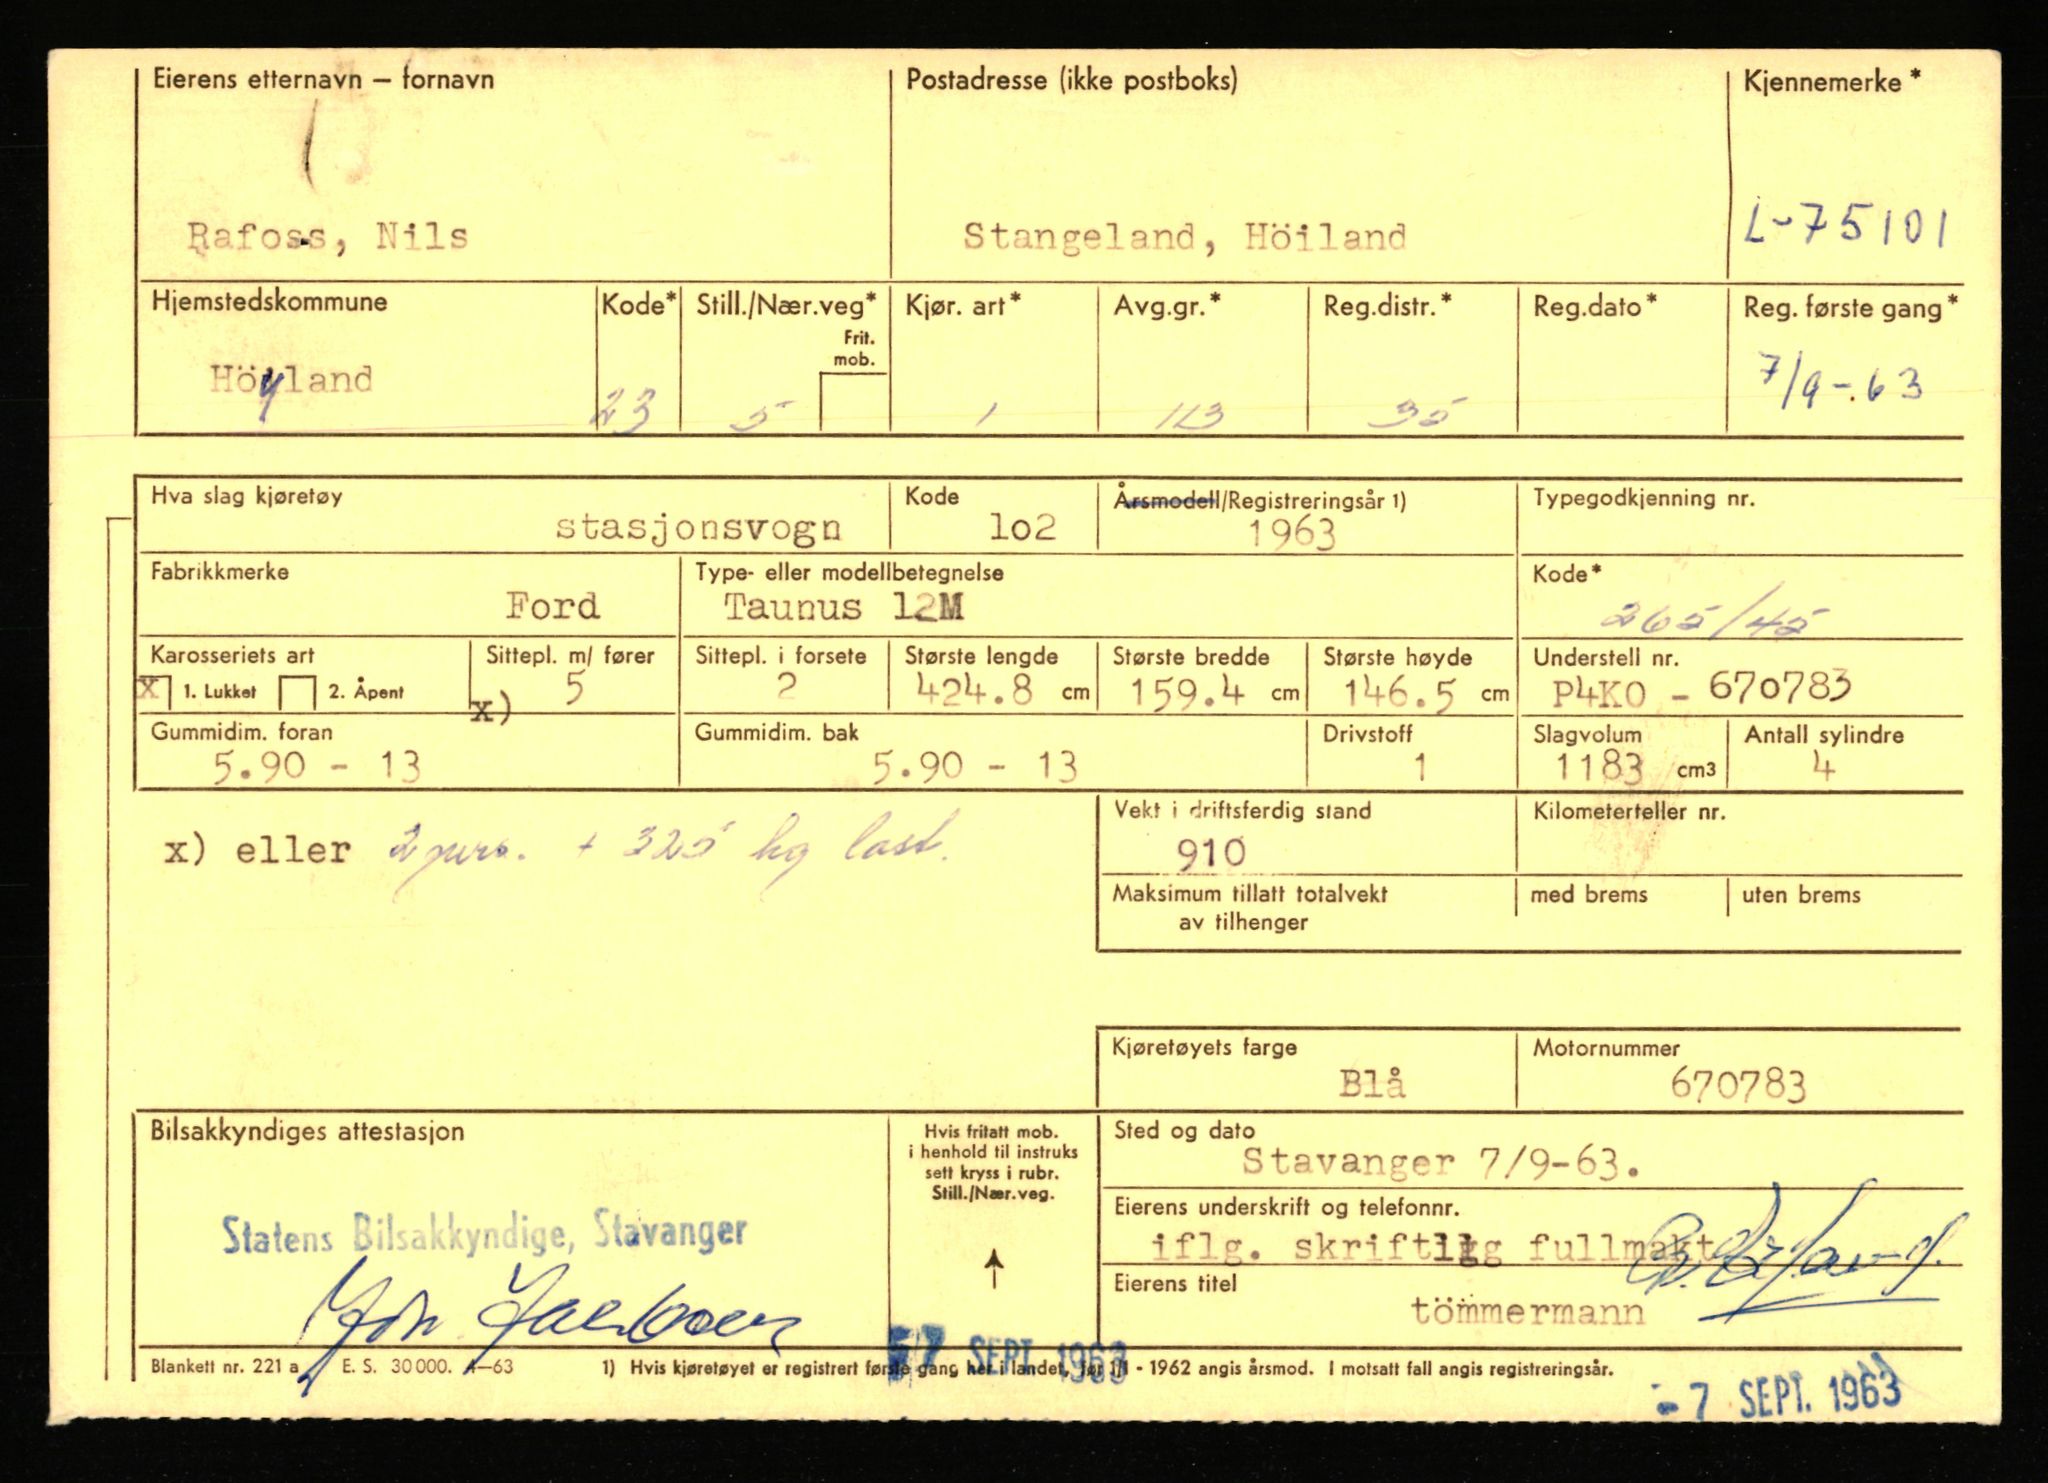 Eierens etternavn – fornavn
Postadresse (ikke postboks)
Kjennemerke*
Rafoss, Nils
Stangeland, Höiland
L-75101
Hjemstedskommune
Kode*
Still./Nær.veg*
Frit. mob.
Kjør. art*
Avg.gr.*
Reg.distr.*
Reg.dato*
Reg. første gang*
Höyland
23
5
1
113
35
7/9-63
Hva slag kjøretøy
stasjonsvogn
Kode
1o2
Årsmodell/Registreringsår 1)
1963
Typegodkjenning nr.
Fabrikkmerke
Ford
Type- eller modellbetegnelse
Taunus 12M
Kode*
265/45
Karosseriets art
X 1. Lukket 2. Åpent
Sittepl. m/ fører
x) 5
Sittepl. i forsete
2
Største lengde
424.8 cm
Største bredde
159.4 cm
Største høyde
146.5 cm
Understell nr.
P4KO - 670783
Gummidim. foran
5.90 - 13
Gummidim. bak
5.90 - 13
Drivstoff
1
Slagvolum
1183 cm3
Antall sylindre
4
x) eller 2 pers. + 325 kg last.
Vekt i driftsferdig stand
910
Kilometerteller nr.
Maksimum tillatt totalvekt
av tilhenger
med brems
uten brems
Kjøretøyets farge
Blå
Motornummer
670783
Bilsakkyndiges attestasjon
Statens Bilsakkyndige, Stavanger
Hvis fritatt mob.
i henhold til instruks
sett kryss i rubr.
Still./Nær.veg.
Sted og dato
Stavanger 7/9-63.
Eierens underskrift og telefonnr.
iflg. skriftlig fullmakt
Eierens titel
tömmermann
-7 SEPT. 1963
Blankett nr. 221 a E. S. 30000. A–63
1) Hvis kjøretøyet er registrert første gang her i landet, før 1/1 - 1962 angis årsmod. I motsatt fall angis registreringsår.
-7 SEPT. 1963